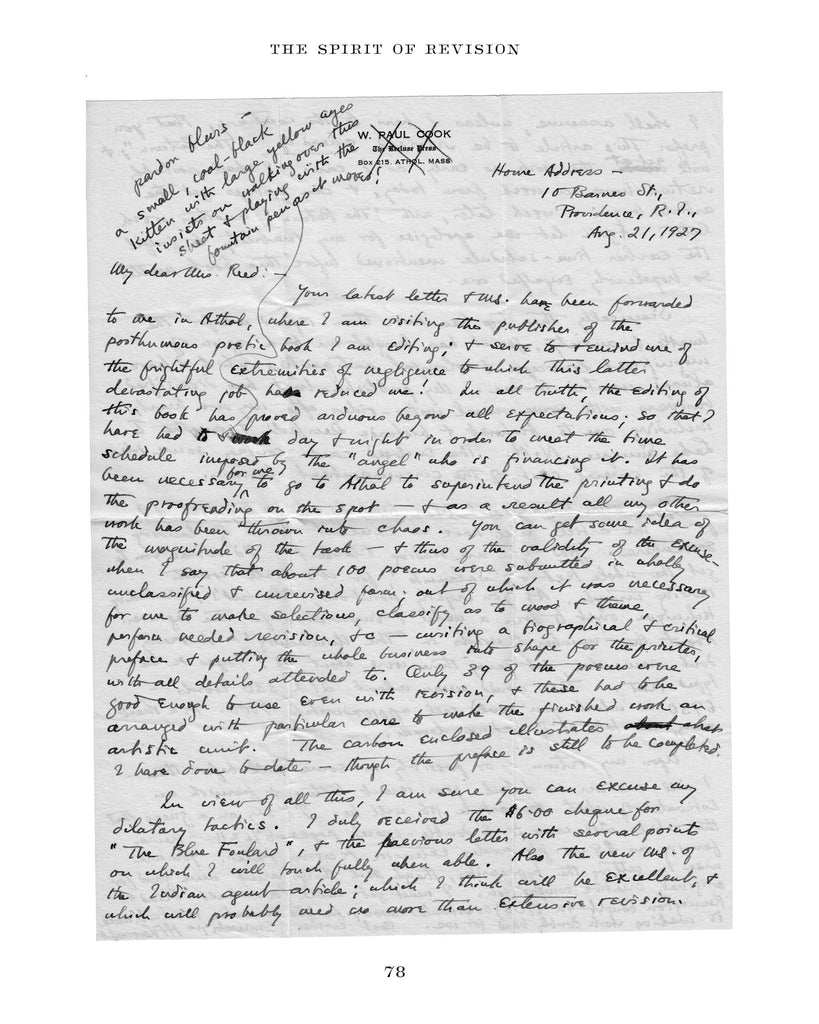 THE SPIRIT OF REVISION
pardon blurs —
a small, coal-black
kitten with large yellow eyes
insists on walking over this
sheet & playing with the
fountain pen as it moves!
W. PAUL COOK
The Recluse Press
Box 215, ATHOL, MASS
Home Address —
10 Barnes St.,
Providence, R.I.,
Aug. 21, 1927
My dear Mrs. Reed: —
Your latest letter & MS. have been forwarded
to me in Athol, where I am visiting the publisher of the
posthumous poetic book I am editing; & serve to remind me of
the frightful extremities of negligence to which this latter
devastating job has reduced me! In all truth, the editing of
this book has proved arduous beyond all expectations; so that I
have had to work day & night in order to meet the time
schedule imposed by the "angel" who is financing it. It has
been necessary for me to go to Athol to superintend the printing & do
the proofreading on the spot — & as a result all my other
work has been thrown into chaos. You can get some idea of
the magnitude of the task — & thus of the validity of the excuse —
when I say that about 100 poems were submitted in wholly
unclassified & unrevised form; out of which it was necessary
for me to make selections, classify as to mood & theme,
perform needed revision, &c — writing a biographical & critical
preface & putting the whole business into shape for the printer,
with all details attended to. Only 39 of the poems were
good enough to use even with revision, & these had to be
arranged with particular care to make the finished work an
artistic unit. The carbon enclosed illustrates about what
I have done to date — though the preface is still to be completed.
In view of all this, I am sure you can excuse my
dilatory tactics. I duly received the $6.00 cheque for
"The Blue Foulard", & the previous letter with several points
on which I will touch fully when able. Also the new MS. of
the Indian agent article; which I think will be excellent, &
which will probably need no more than extensive revision.
78